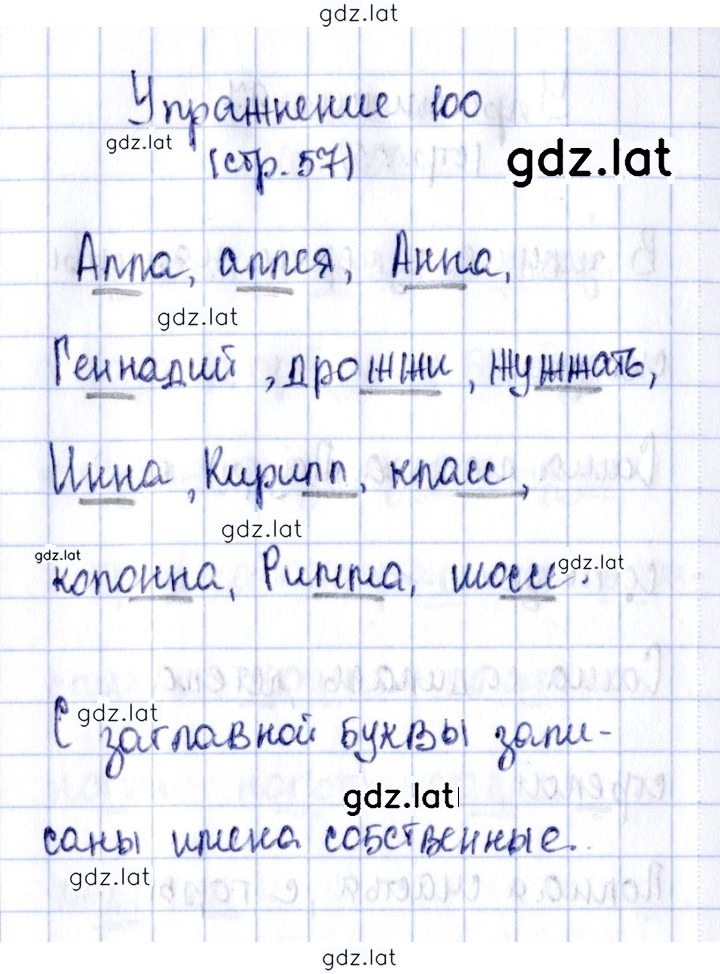 gdz.lat
Упражнение 100
gdz.lat
(стр. 57)
gdz.lat
Алла, аллея, Анна,
gdz.lat
Геннадий, дрожжи, жужжать,
Инна, Кирилл, класс,
gdz.lat
gdz.lat
gdz.lat
колонна, Римма, шоссе.
gdz.lat
С заглавной буквы запи-
gdz.lat
саны имена собственные.
gdz.lat
gdz.lat